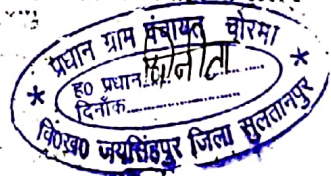 प्रधान ग्राम पंचायत चोरमा
ह0 प्रधान..............
दिनाँक..............
वि0ख0 जयसिंहपुर जिला सुलतानपुर